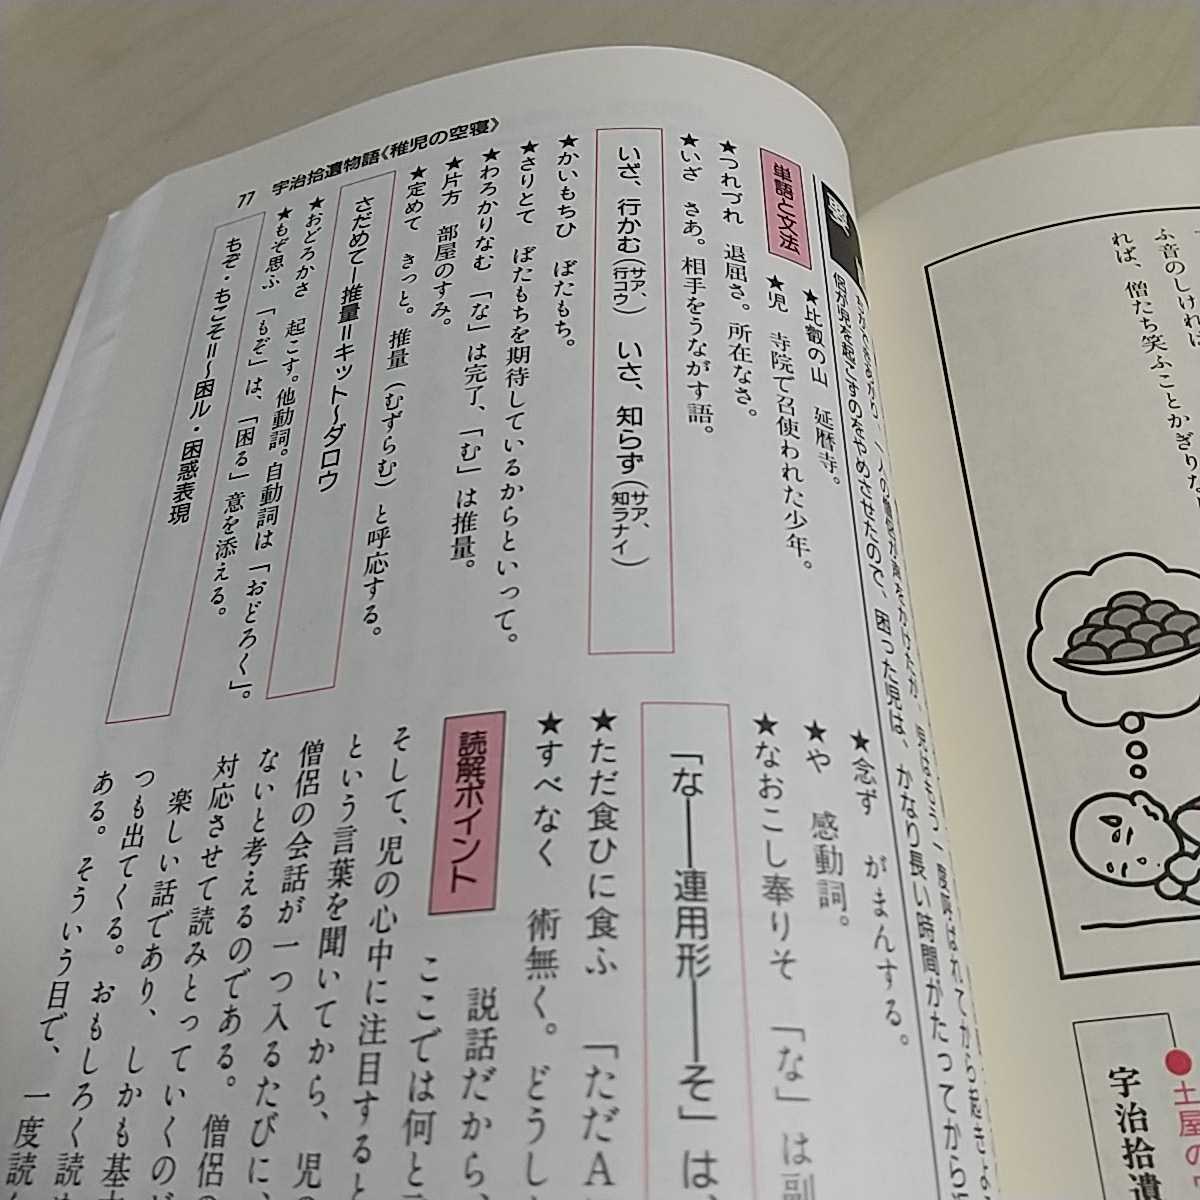 ふ音のしければ
れば、僧たち笑ふことかぎりな
宇治拾遺
●土屋の
要
侶が児を起こすのをやめさせたので、困った児は、かなり長い時間がたってから
単語と文法
★比叡の山　延暦寺。
★児　寺院で召使われた少年。
★つれづれ　退屈さ。所在なさ。
★いざ　さあ。相手をうながす語。
いざ、行かむ（サア、行コウ）　いさ、知らず（サア、知ラナイ）
★かいもちひ　ぼたもち。
★さりとて　ぼたもちを期待しているからといって。
★わろかりなむ　「な」は完了、「む」は推量。
★片方　部屋のすみ。
★定めて　きっと。推量（むずらむ）と呼応する。
さだめて―推量＝キット〜ダロウ
★おどろかさ　起こす。他動詞。自動詞は「おどろく」。
★もぞ思ふ　「もぞ」は、「困る」意を添える。
もぞ・もこそ＝〜困ル・困惑表現
★念ず　がまんする。
★や　感動詞。
★なおこし奉りそ　「な」は副
「な――連用形――そ」は、
★ただ食ひに食ふ　「ただA
★すべなく　術無く。どうし
読解ポイント
説話だから、
ここでは何と
そして、児の心中に注目すると
という言葉を聞いてから、児
僧侶の会話が一つ入るたびに、
ないと考えるのである。僧侶の
対応させて読みとっていくの
楽しい話であり、しかも基本
つも出てくる。おもしろく読
ある。そういう目で、一度読
77　宇治拾遺物語《稚児の空寝》